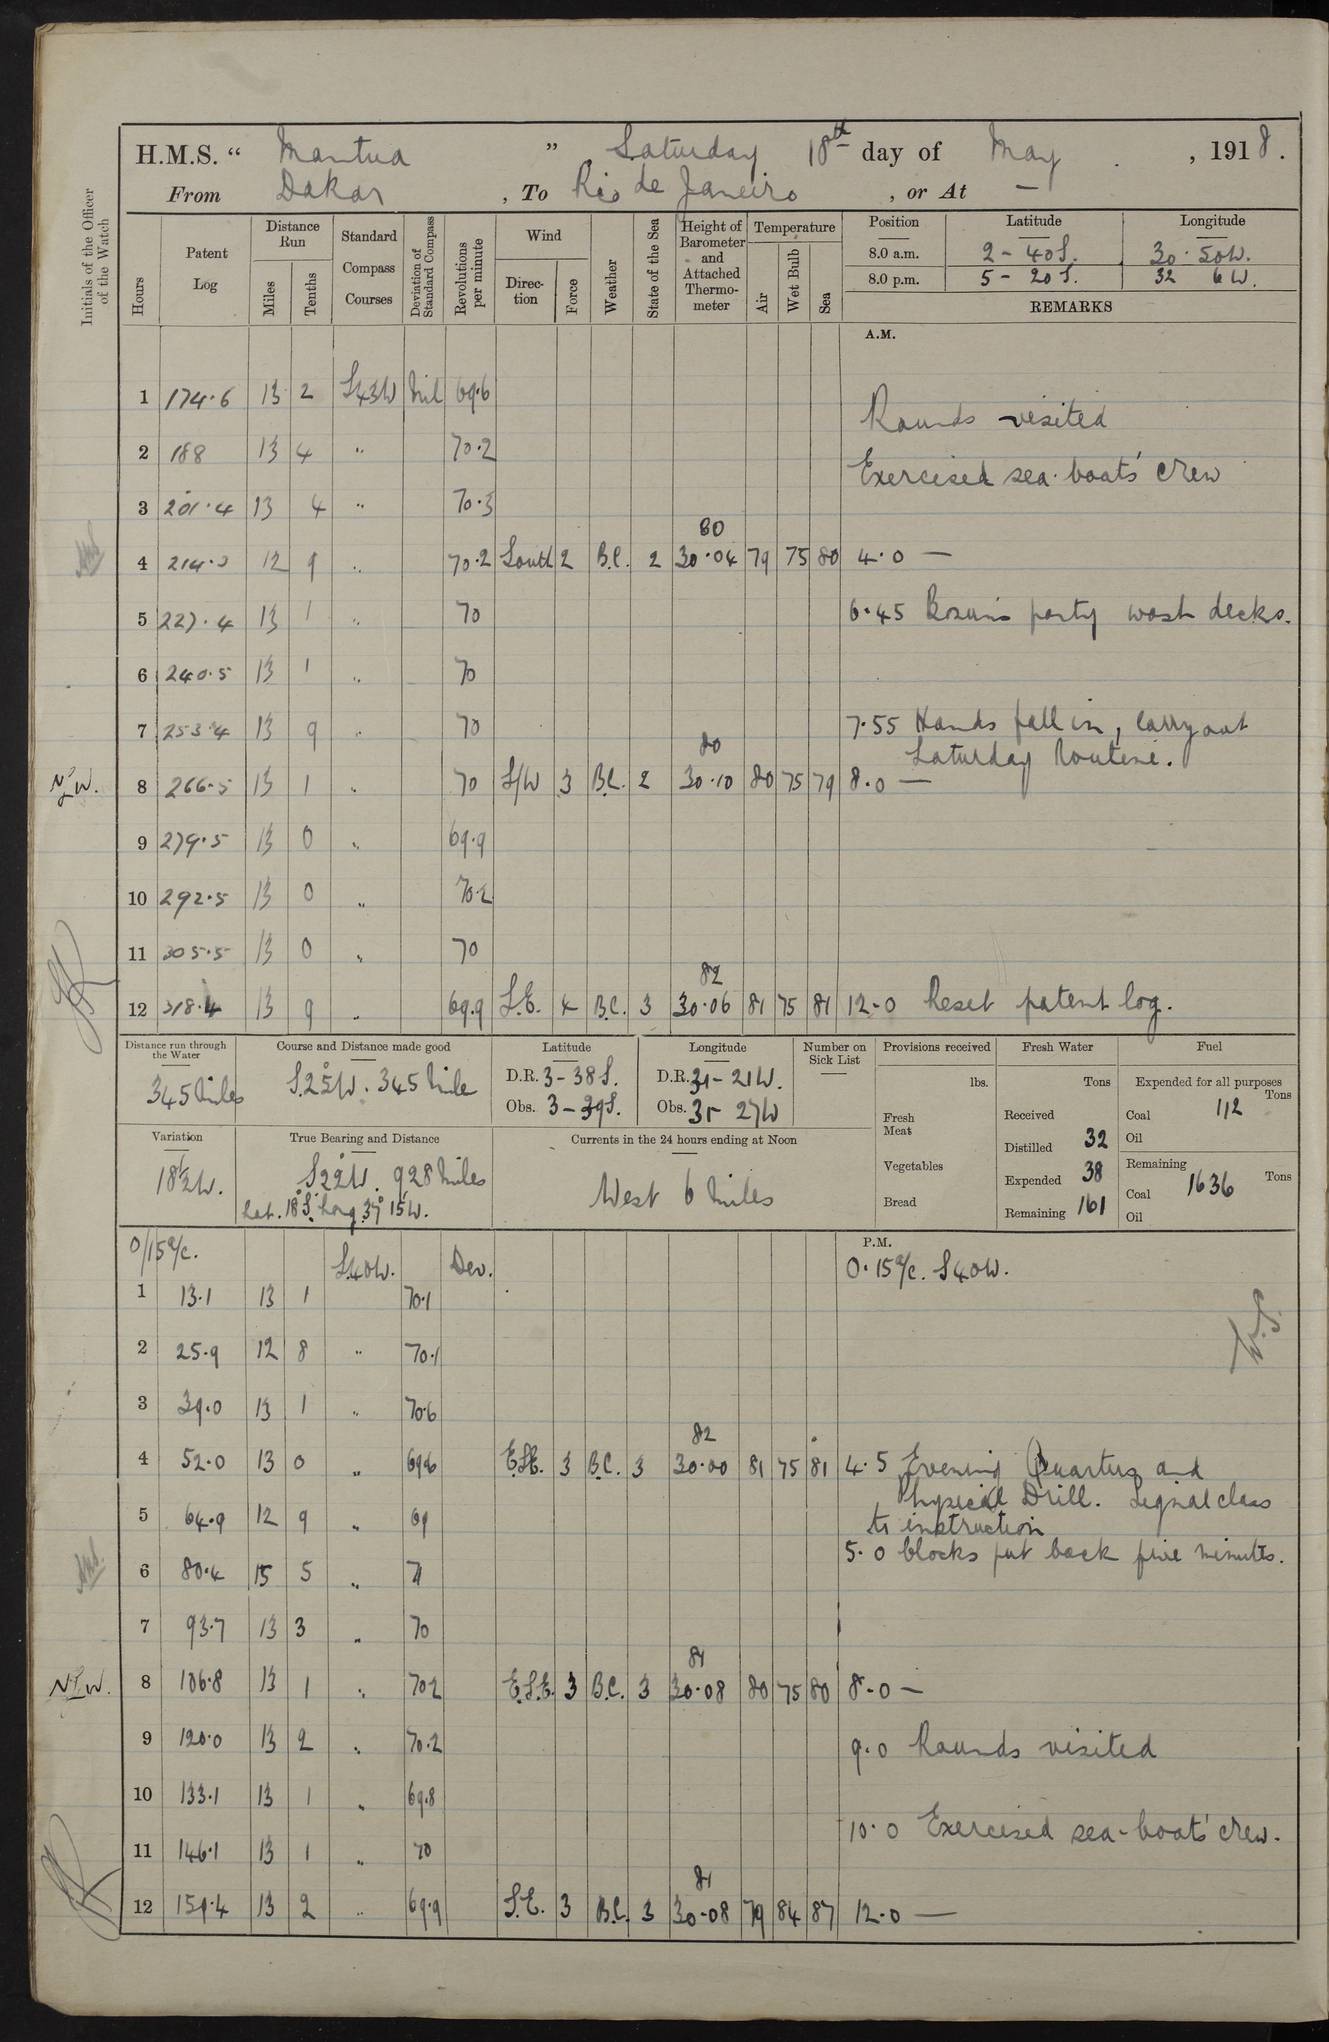 H.M.S. “ Mantua ” Saturday 18th day of May , 1918.
From Dakar , To Rio de Janeiro , or At —
Initials of the Officer of the Watch
Hours
Patent Log
Distance Run
Miles
Tenths
Standard Compass Courses
Deviation of Standard Compass
Revolutions per minute
Wind
Direction
Force
Weather
State of the Sea
Height of Barometer and Attached Thermometer
Temperature
Air
Wet Bulb
Sea
Position Latitude Longitude
8.0 a.m. 2 - 40 S. 30 · 50 W.
8.0 p.m. 5 - 20 S. 32 6 W.
REMARKS
A.M.
1 174·6 13 2 S43W Nil 69·6
Rounds visited
2 188 13 4 " 70·2
Exercised sea-boat's crew
3 201·4 13 4 " 70·3
80
4 214·3 12 9 " 70·2 South 2 B.C. 2 30·04 79 75 80 4·0 —
5 227·4 13 1 " 70 6·45 Bosun's party wash decks.
6 240·5 13 1 " 70
7 253·4 13 9 " 70 7·55 Hands fall in, carry out
80
Saturday Routine.
N.W. 8 266·5 13 1 " 70 S/W 3 B.C. 2 30·10 80 75 79 8·0 —
9 279·5 13 0 " 69·9
10 292·5 13 0 " 70·2
11 305·5 13 0 " 70
82
12 318·4 13 9 " 69·9 S.E. 4 B.C. 3 30·06 81 75 81 12-0 Reset patent log.
Distance run through the Water
345 Miles
Course and Distance made good
S.25°W. 345 Miles
Latitude
D.R. 3 - 38 S.
Obs. 3 - 39 S.
Longitude
D.R. 31 - 21 W.
Obs. 31 27 W
Number on Sick List
Provisions received
lbs.
Fresh Meat
Vegetables
Bread
Fresh Water
Tons
Received
Distilled 32
Expended 38
Remaining 161
Fuel
Expended for all purposes
Tons
Coal 112
Oil
Remaining
Coal 1636 Tons
Oil
Variation
18½W.
True Bearing and Distance
S22°W. 928 Miles
Lat. 18°S. Long 37° 15'W.
Currents in the 24 hours ending at Noon
West 6 Miles
P.M.
0/15 a/c. S.40W. Dev. 0·15 a/c. S40W.
1 13·1 13 1 70·1
2 25·9 12 8 " 70·1
3 39·0 13 1 " 70·6
82
4 52·0 13 0 " 69·6 E.S.E. 3 B.C. 3 30·00 81 75 81 4·5 Evening Quarters and
Physical Drill. Signal class
to instruction
5 64·9 12 9 " 69
5·0 Clocks put back five minutes.
6 80·4 15 5 " 71
7 93·7 13 3 " 70
81
N.W. 8 106·8 13 1 " 70·2 E.S.E. 3 B.C. 3 30·08 80 75 80 8·0 —
9 120·0 13 2 " 70·2 9·0 Rounds visited
10 133·1 13 1 " 69·8
10·0 Exercised sea-boat's crew.
11 146·1 13 1 " 70
81
12 159·4 13 2 " 69·9 S.E. 3 B.C. 3 30·08 79 84 87 12·0 —